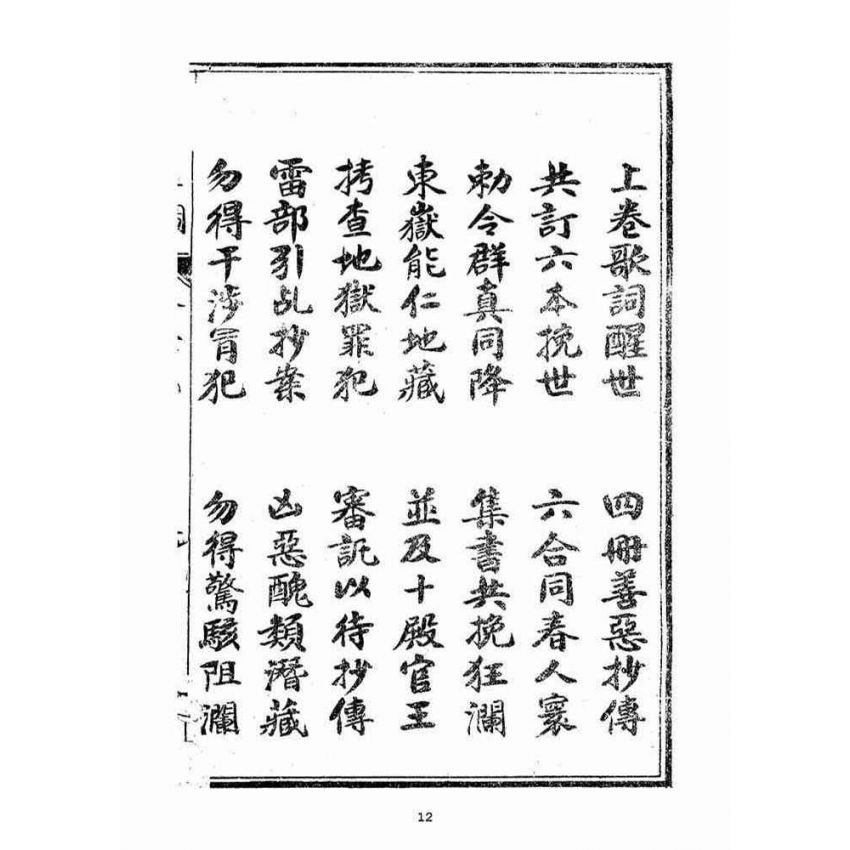 上卷歌詞醒世 四冊善惡抄傳
共訂六本挽世 六合同春人寰
勅令群真同降 集書共挽狂瀾
東嶽能仁地藏 並及十殿官王
拷查地獄罪犯 審訊以待抄傳
雷部引乩抄案 凶惡醜類潛藏
勿得干涉冒犯 勿得驚駭阻瀾
12